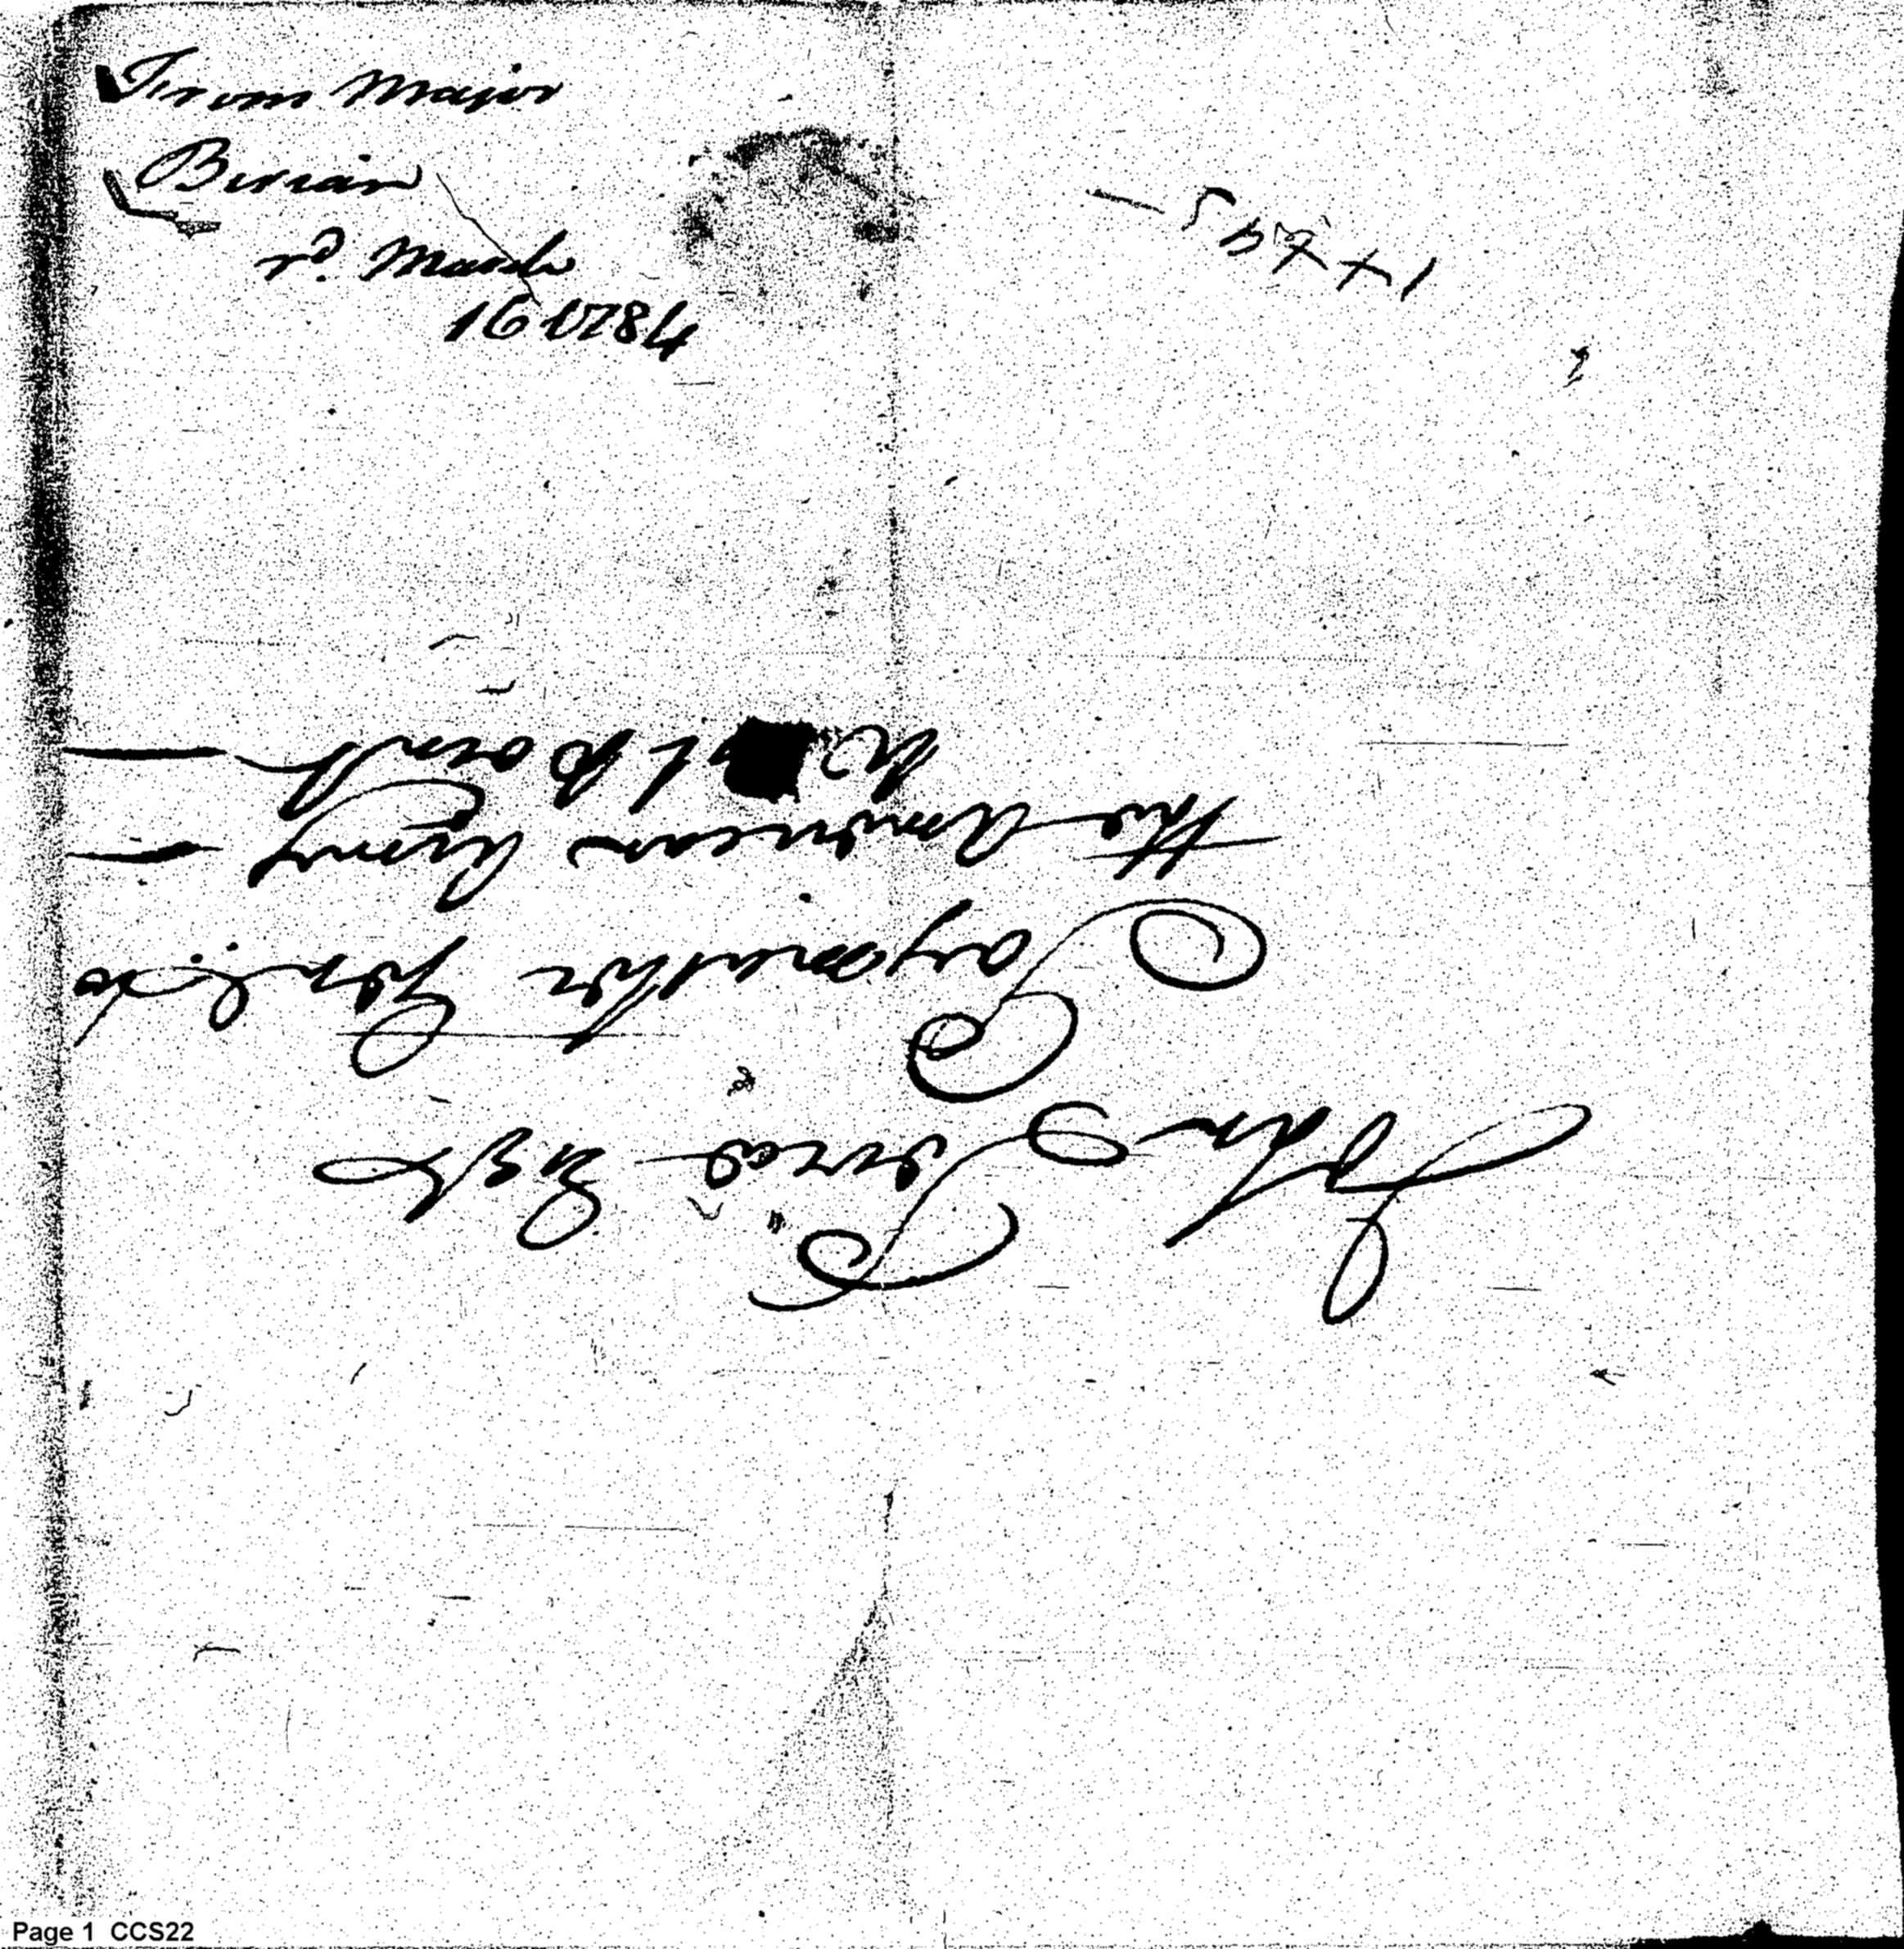 From Major
Berian
rd. March
16 1784
John Pierce Esqr
Paymaster Genl. to
the American Army —
West Point —
Page 1 CCS22